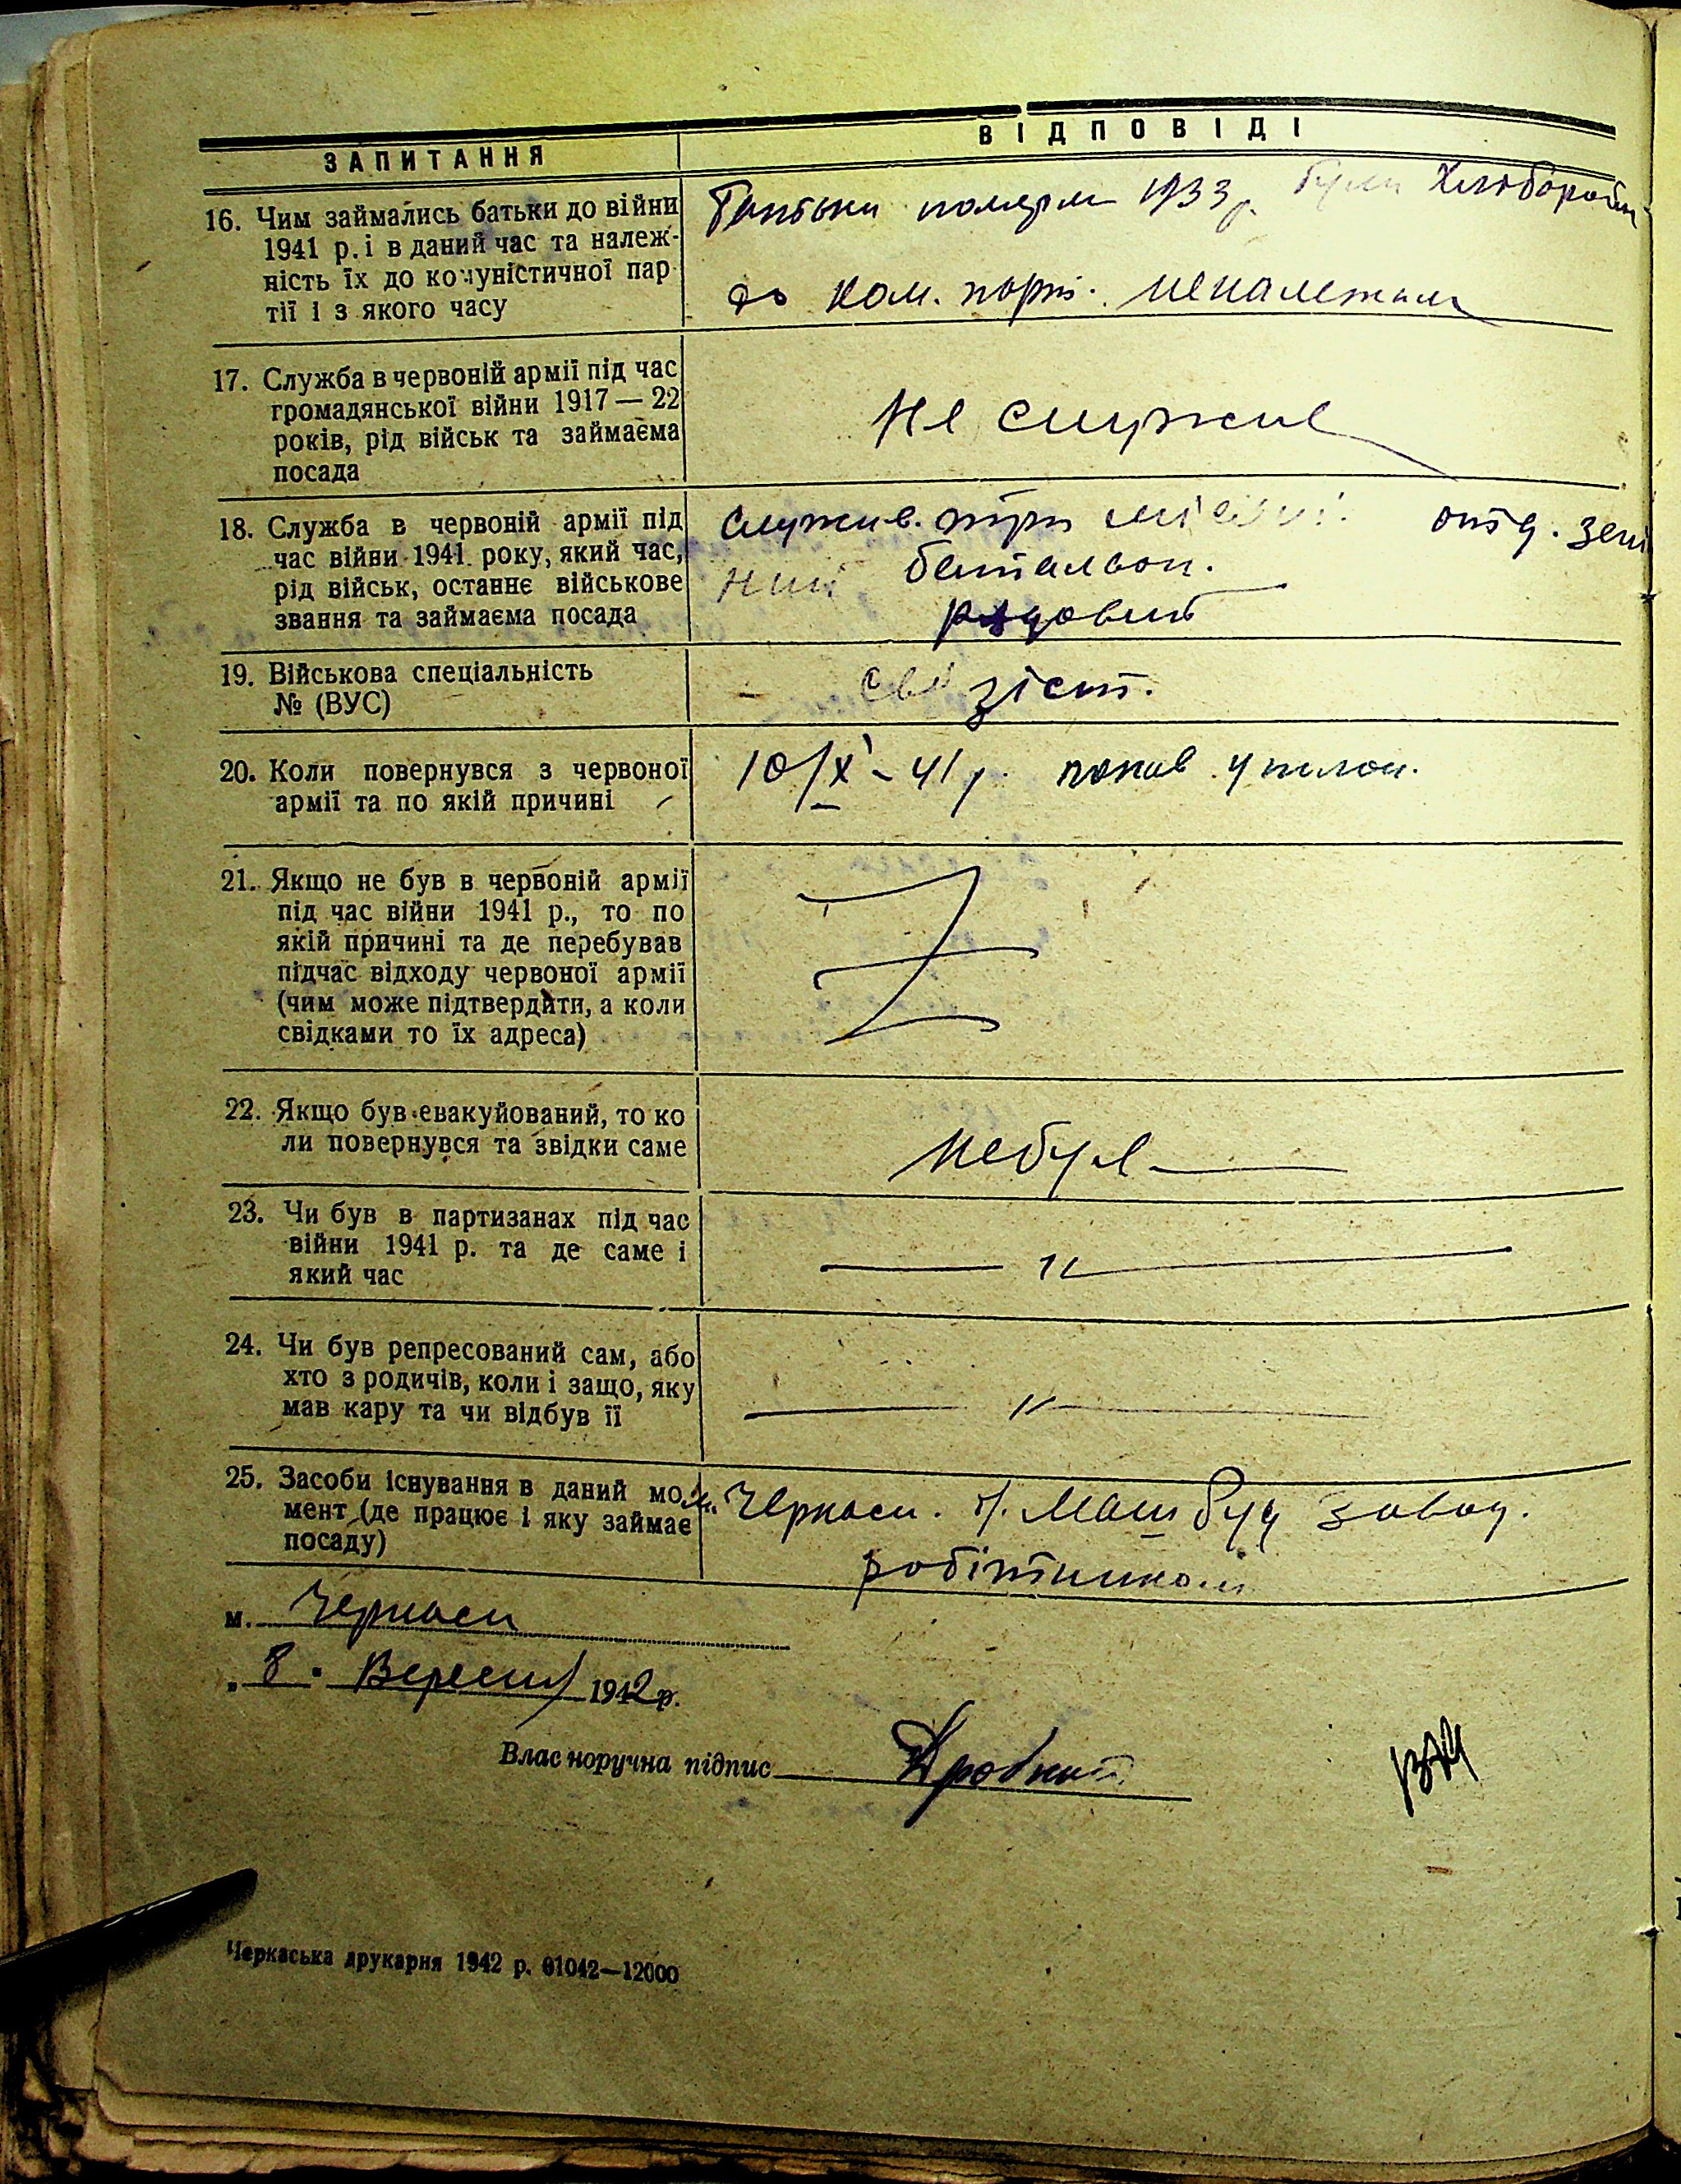 ЗАПИТАННЯ
ВІДПОВІДІ
16. Чим займались батьки до війни
1941 р. і в даний час та належ-
ність їх до комуністичної пар
тії і з якого часу
Батьки померли 1933 р. були Хлібороби
до ком. парт. неналежали
17. Служба в червоній армії під час
громадянської війни 1917 — 22
років, рід військ та займаєма
посада
не служив
18. Служба в червоній армії під
час війни 1941 року, який час,
рід військ, останнє військове
звання та займаєма посада
служив. три місяці. отд. зеніт
ний батальон.
рядовий
19. Військова спеціальність
№ (ВУС)
свізіст.
20. Коли повернувся з червоної
армії та по якій причині
10/ІХ - 41 р. попав у плон.
21. Якщо не був в червоній армії
під час війни 1941 р., то по
якій причині та де перебував
підчас відходу червоної армії
(чим може підтвердити, а коли
свідками то їх адреса)
22. Якщо був евакуйований, то ко
ли повернувся та звідки саме
небув
23. Чи був в партизанах під час
війни 1941 р. та де саме і
який час
— " —
24. Чи був репресований сам, або
хто з родичів, коли і защо, яку
мав кару та чи відбув її
— " —
25. Засоби існування в даний мо
мент (де працює і яку займає
посаду)
м. Черкаси. Маш буд завод.
робітником
м. Черкаси
„ 8 " Вересня 1942 р.
Власноручна підпис
Черкаська друкарня 1942 р. 01042—12000